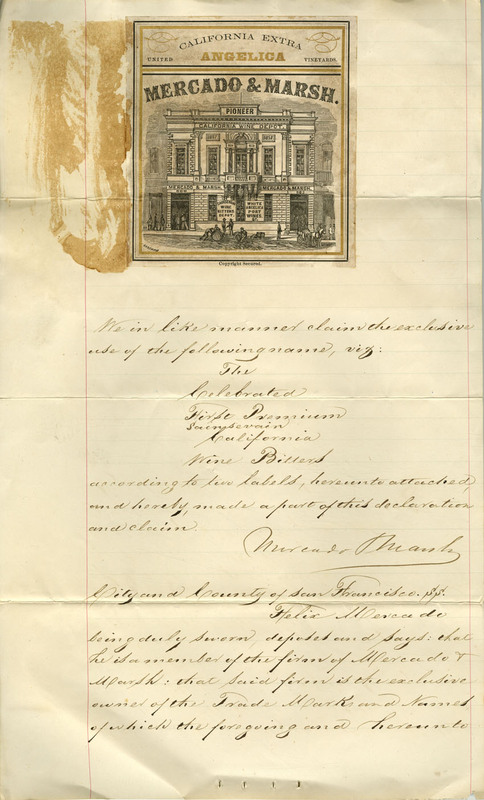 CALIFORNIA EXTRA
UNITED ANGELICA VINEYARDS.
MERCADO & MARSH.
PIONEER
CALIFORNIA WINE DEPOT.
MERCADO & MARSH. MERCADO & MARSH.
WINE BITTERS DEPOT. WHITE ANGELICA PORT WINES
Copyright Secured.
We in like manner claim the exclusive
use of the following name, viz:
The
Celebrated
First Premium
Sainsevain
California
Wine Bitters
according to two labels, hereunto attached,
and hereby, made a part of this declaration
and claim.
Mercado & Marsh
City and County of San Francisco. ss.
Felix Mercado
being duly sworn deposes and says: that
he is a member of the firm of Mercado &
Marsh: that said firm is the exclusive
owner of the Trade Marks and Names
of which the foregoing and hereunto